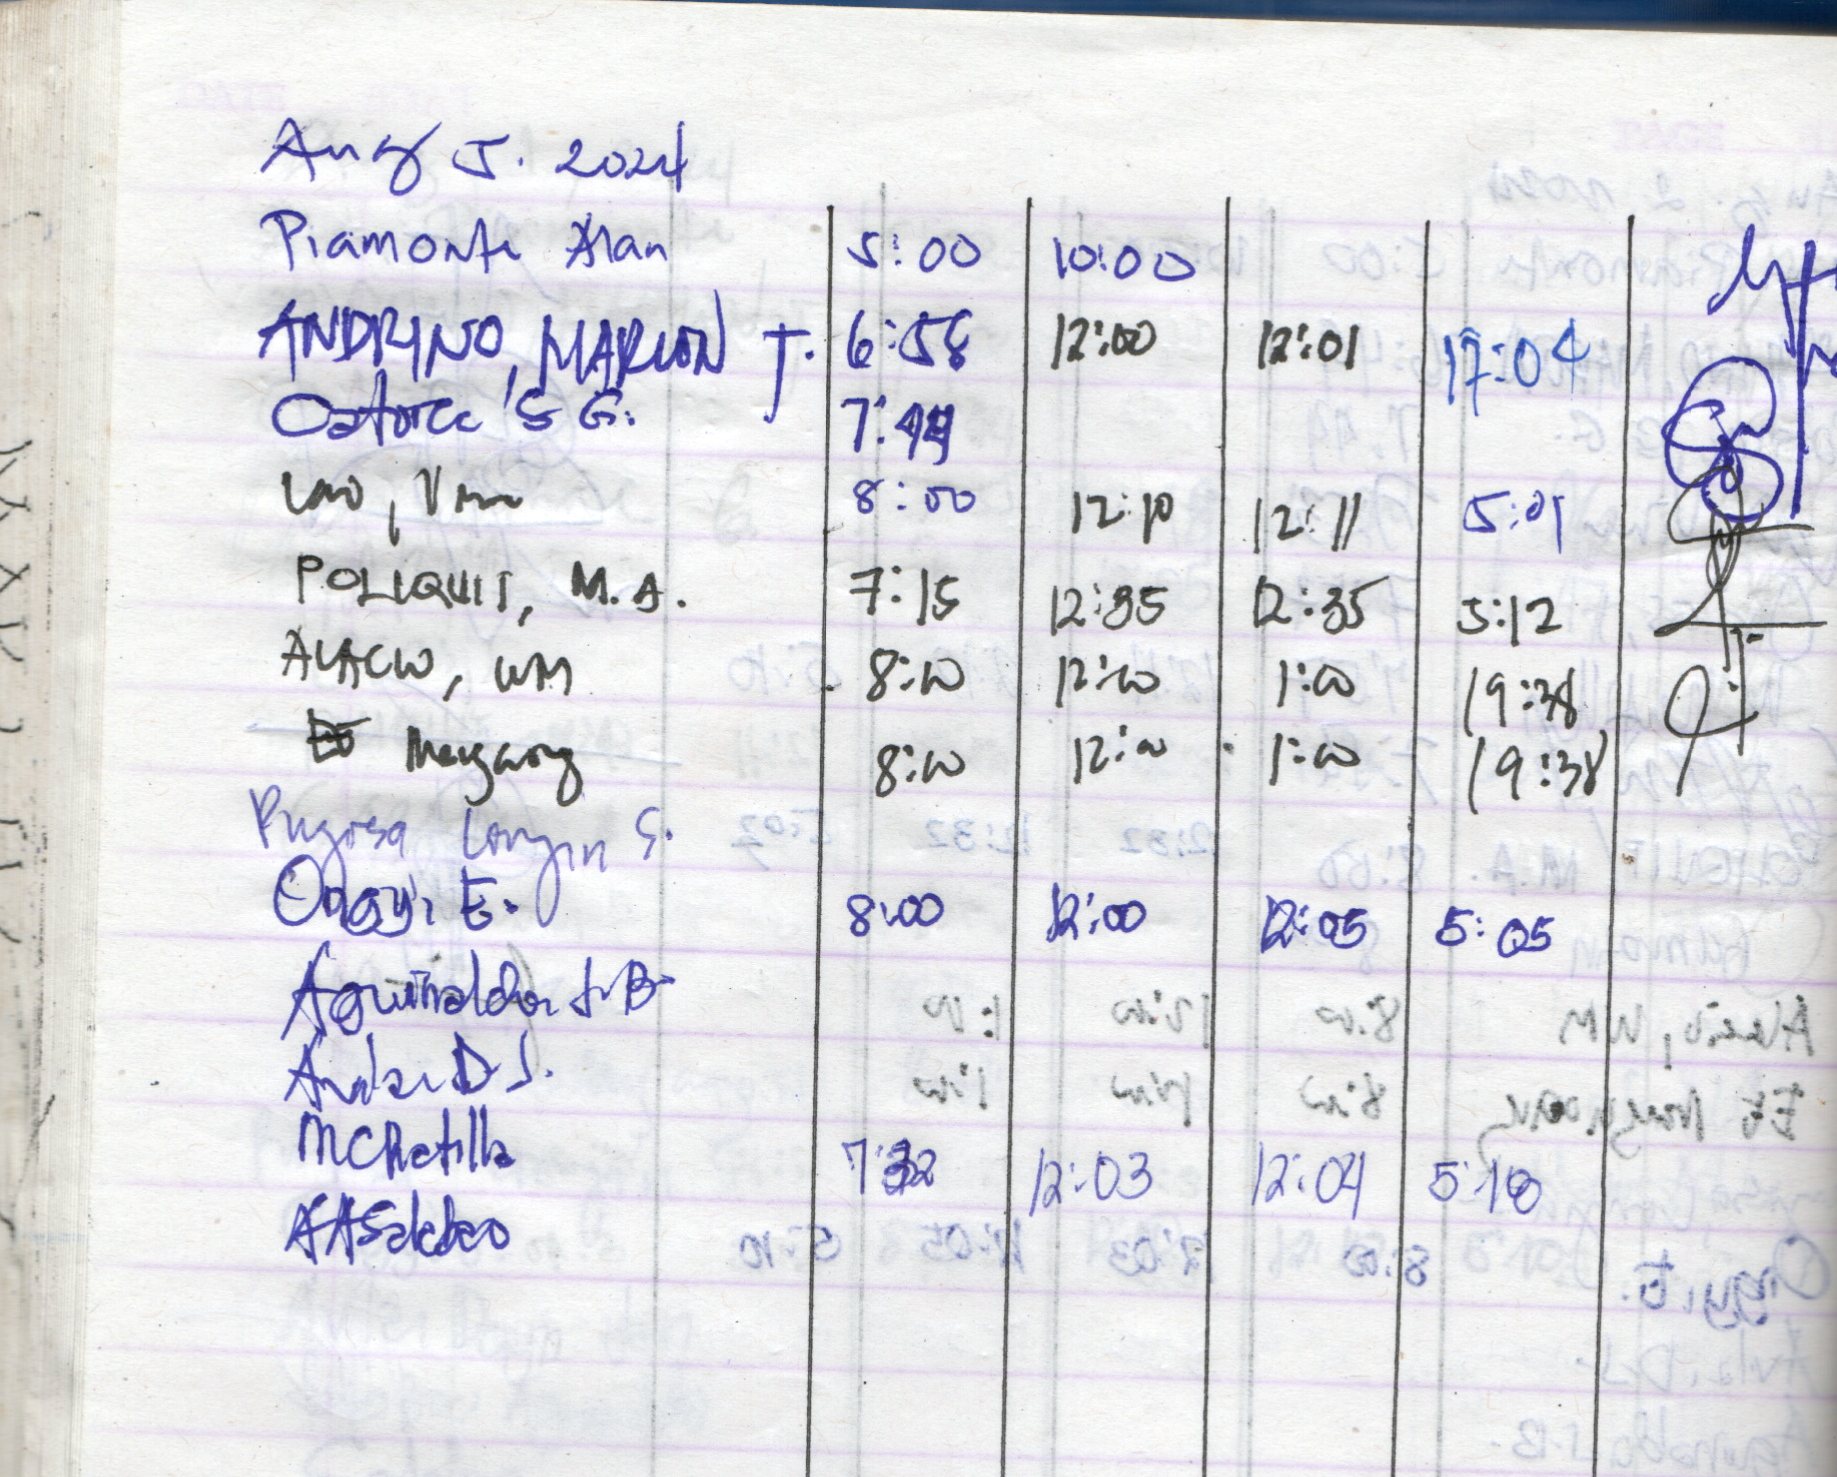 Aug 5. 2024
Piamonte Alan 5:00 10:00
ANDRINO, MARLON J. 6:58 12:00 12:01 17:04
S G. 7:44
Lao, 8:00 12:10 12:11 5:01
POLIQUIT, M.A. 7:15 12:35 12:35 5:12
ALACIO, WM 8:00 12:00 1:00 19:38
Maygang 8:00 12:00 1:00 19:38
Pugosa Longin S.
Ongy, E. 8:00 12:00 12:05 5:05
Aguinaldo, J.B
Avila, D J.
MCRetilla 7:32 12:03 12:04 5:10
AASalabao